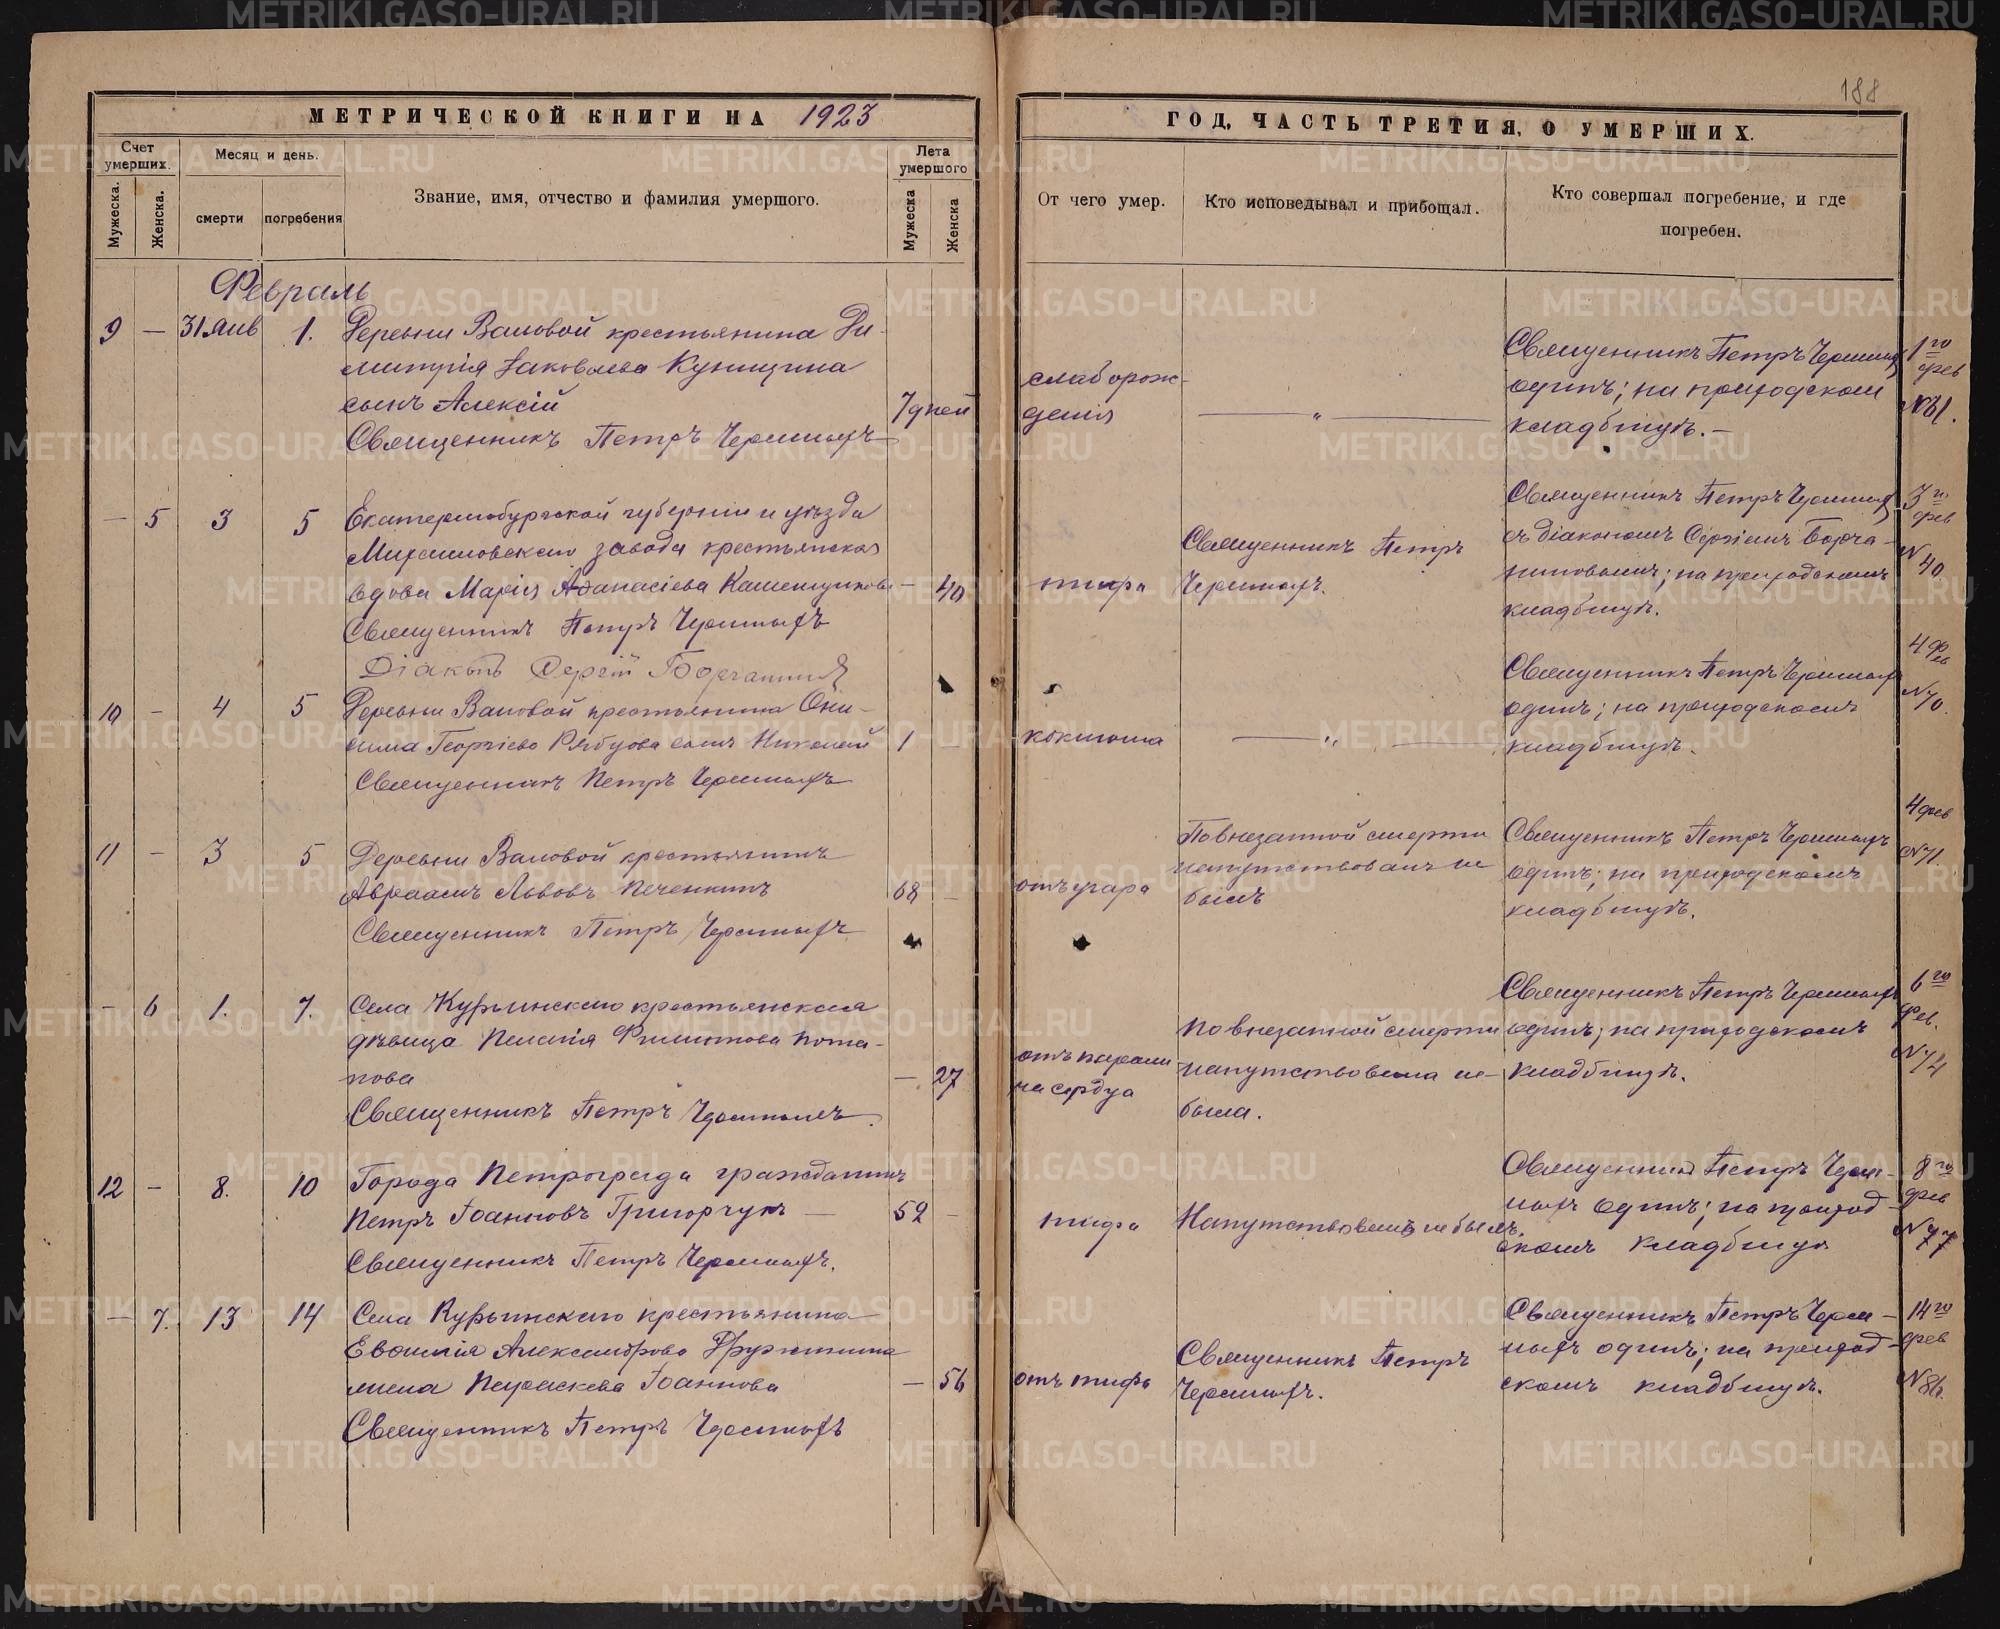 188
МЕТРИЧЕСКОЙ КНИГИ НА 1923
ГОД, ЧАСТЬ ТРЕТИЯ, О УМЕРШИХ.
Счет умерших.
Мужеска.
Женска.
Месяц и день.
смерти
погребения
Звание, имя, отчество и фамилия умершого.
Лета умершого
Мужеска
Женска
От чего умер.
Кто исповедывал и прибощал.
Кто совершал погребение, и где
погребен.
Февраль
9 — 31 янв 1.
Деревни Валовой крестьянина Ди-
митрія Іаковлева Куницина
сынъ Алексій
7 дней
Священникъ Петръ Черемныхъ
слаборож-
денія
— „ —
Священникъ Петръ Черемныхъ
одинъ; на приходскомъ
кладбищѣ. —
1го фев
№31.
— 5 3 5
Екатеринбургской губерніи и уѣзда
Михайловскаго завода крестьянская
вдова Марія Аѳанасіева
— 40
Священникъ Петръ Черемныхъ
Діаконъ Сергій
тифа
Священникъ Петръ
Черемныхъ.
Священникъ Петръ Черемныхъ
съ діакономъ Сергіемъ Борча-
ниновымъ; на приходскомъ
кладбищѣ.
3го фев
№ 40.
10 — 4 5
Деревни Валовой крестьянина Они-
сима Георгіева Рябухова сынъ Николай
1 —
Священникъ Петръ Черемныхъ
коклюша
— „ —
Священникъ Петръ Черемныхъ
одинъ; на приходскомъ
кладбищѣ.
4 фев
№70.
11 — 3 5
Деревни Валовой крестьянинъ
Авраамъ Львовъ Печенкинъ
68 —
Священникъ Петръ Черемныхъ
отъ угара
По внезапной смерти
напутствованъ не
былъ
Священникъ Петръ Черемныхъ
одинъ; на приходскомъ
кладбищѣ.
4 фев
№71
— 6 1. 7.
Села Курьинскаго крестьянская
дѣвица Пелагія Филиппова Пота-
пова
— 27
Священникъ Петръ Черемныхъ.
отъ парали-
ча сердца
По внезапной смерти
напутствована не
была.
Священникъ Петръ Черемныхъ
одинъ; на приходскомъ
кладбищѣ.
6го фев.
№74
12 — 8. 10
Города Петрограда гражданинъ
Петръ Іоанновъ Григорчукъ —
52 —
Священникъ Петръ Черемныхъ.
тифа
Напутствованъ не былъ.
Священникъ Петръ Черем-
ныхъ одинъ; на приход-
скомъ кладбищѣ
8го фев
№77
— 7. 13 14
Села Курьинскаго крестьянина
Евѳимія Александрова
жена Параскева Іоаннова
— 56
Священникъ Петръ Черемныхъ
отъ тифа
Священникъ Петръ
Черемныхъ.
Священникъ Петръ Черем-
ныхъ одинъ; на приход-
скомъ кладбищѣ.
14го фев
№86.
METRIKI.GASO-URAL.RU